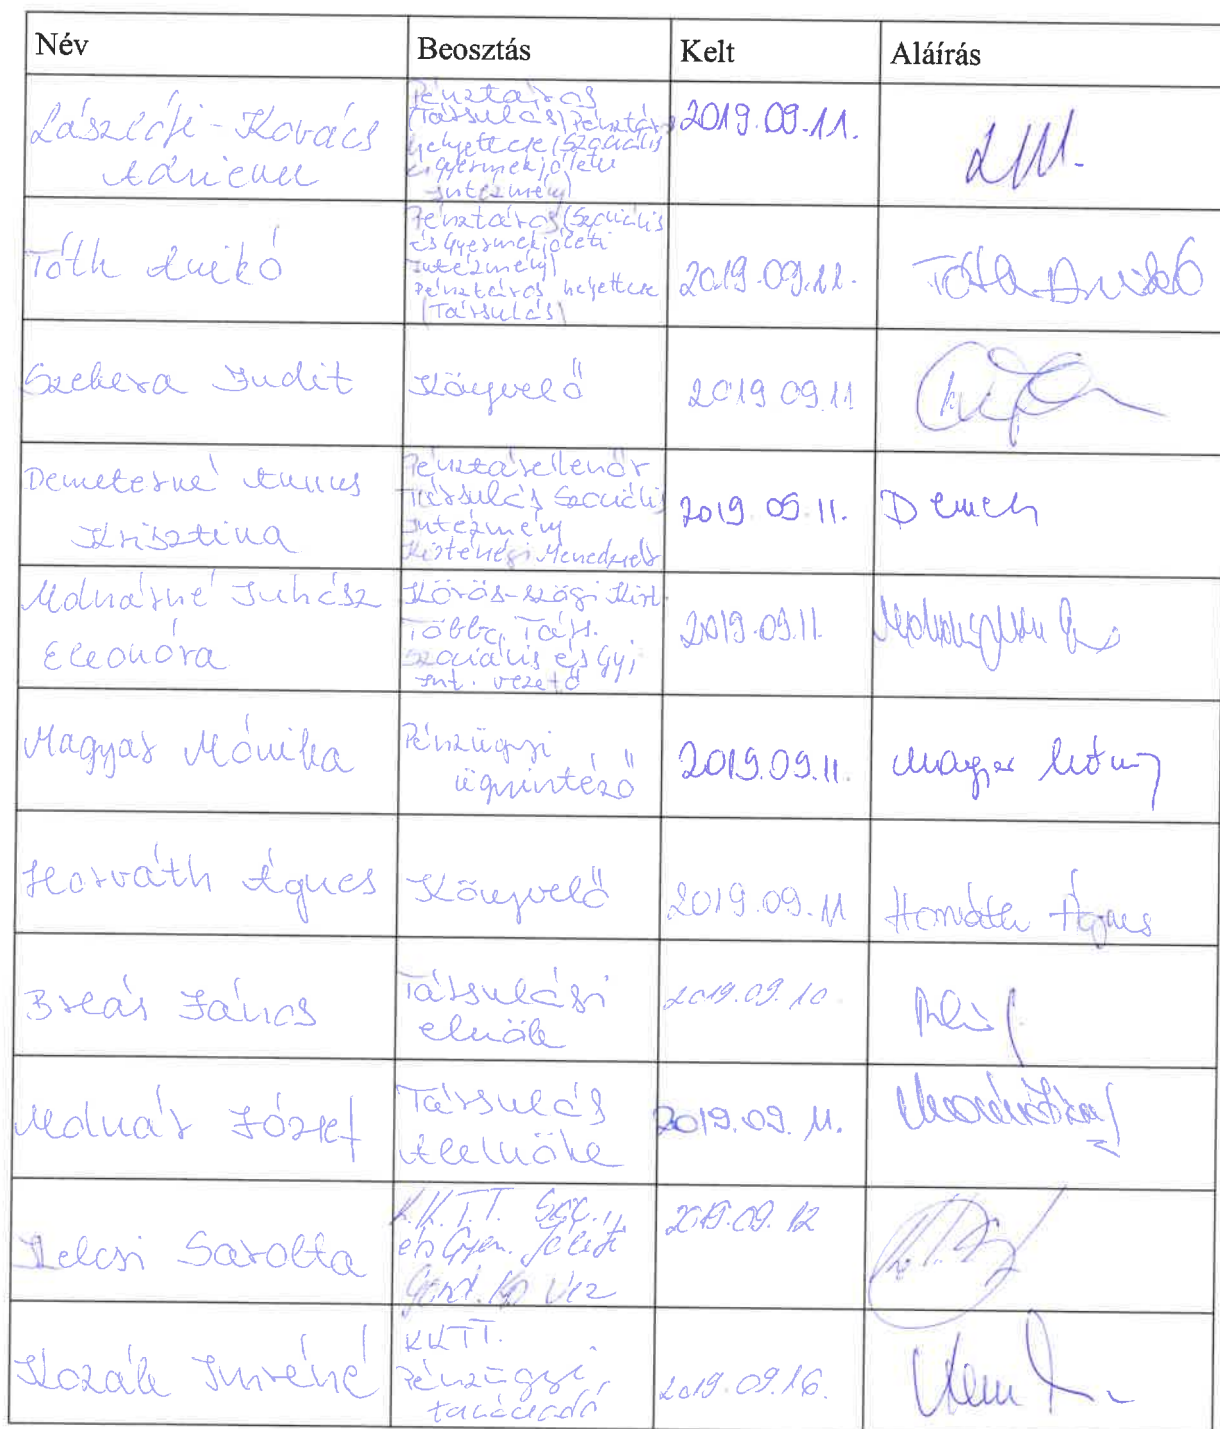 Név Beosztás Kelt Aláírás
Lászlófi-Kovács
Adrienn
Pénztáros
(Társulás) Pénztáros
helyettese (Szociális
és gyermekjóléti
intézmény)
2019.09.11.
Tóth Anikó
Pénztáros (Szociális
és Gyermekjóléti
intézmény)
Pénztáros helyettese
(Társulás)
2019.09.11.
Tóth Anikó
Szekera Judit
Könyvelő
2019 09.11
Demeterné
Krisztina
Pénztárellenőr
Társulás Szociális
intézmény
Kistérségi Menedzser
2019.09.11.
Molnárné Juhász
Eleonóra
Körös-szögi Kist.
Többc. Társ.
szociális és Gyj
int. vezető
2019.09.11.
Magyar Mónika
Pénzügyi
ügyintéző
2019.09.11.
Magyar Món
Horváth Ágnes
Könyvelő
2019.09.11
Horváth Ágnes
János
Társulási
elnök
2019.09.10.
Molnár József
Társulás
Alelnöke
2019.09.11.
Sarolta
K.K.T.T. Szoc.
és Gyerm. Jóléti
2019.09.12
Kozák Imréné
KKTT.
Pénzügyi
tanácsadó
2019.09.16.